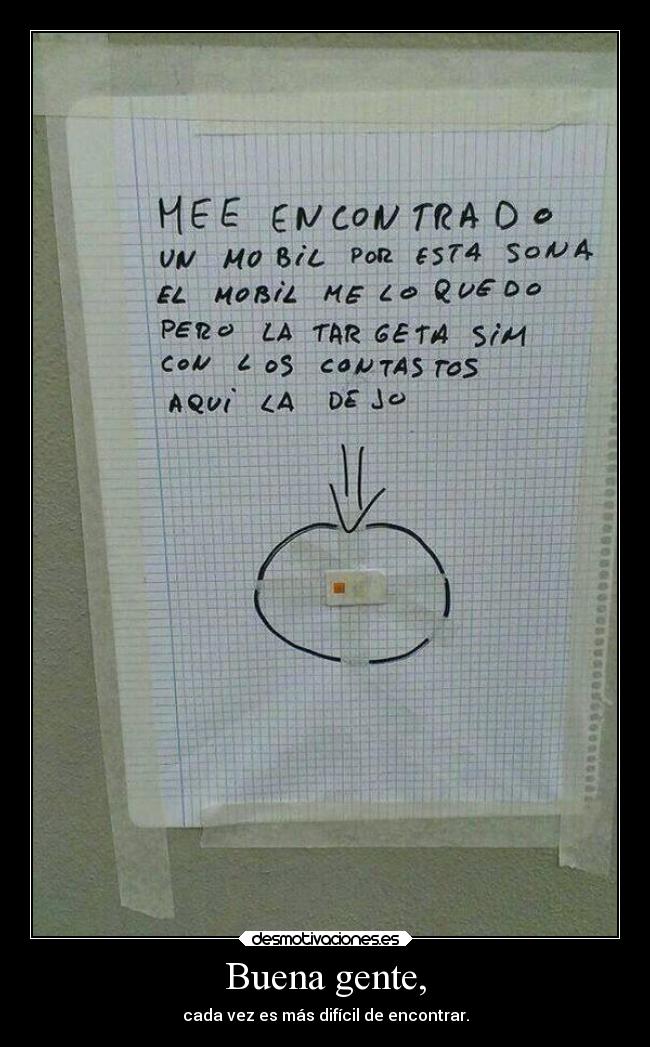 MEE ENCONTRADO
UN MOBIL POR ESTA SONA
EL MOBIL ME LO QUEDO
PERO LA TARGETA SIM
CON LOS CONTASTOS
AQUI LA DEJO
desmotivaciones.es
Buena gente,
cada vez es más difícil de encontrar.